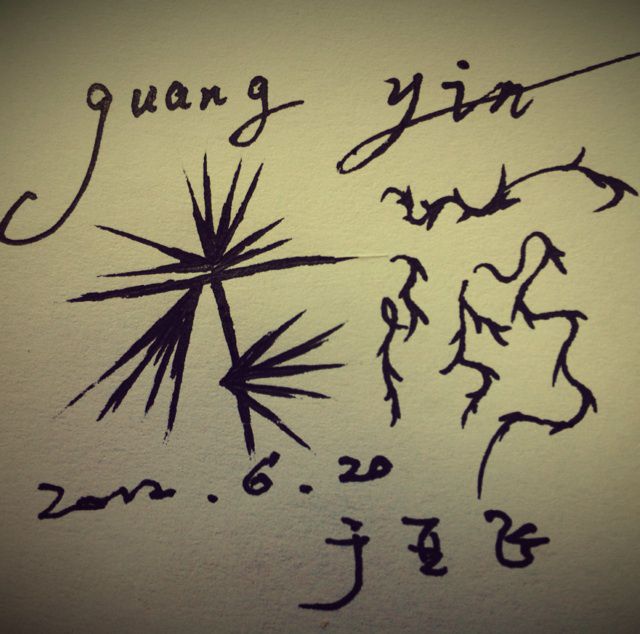 guang yin
光
2012.6.20
于